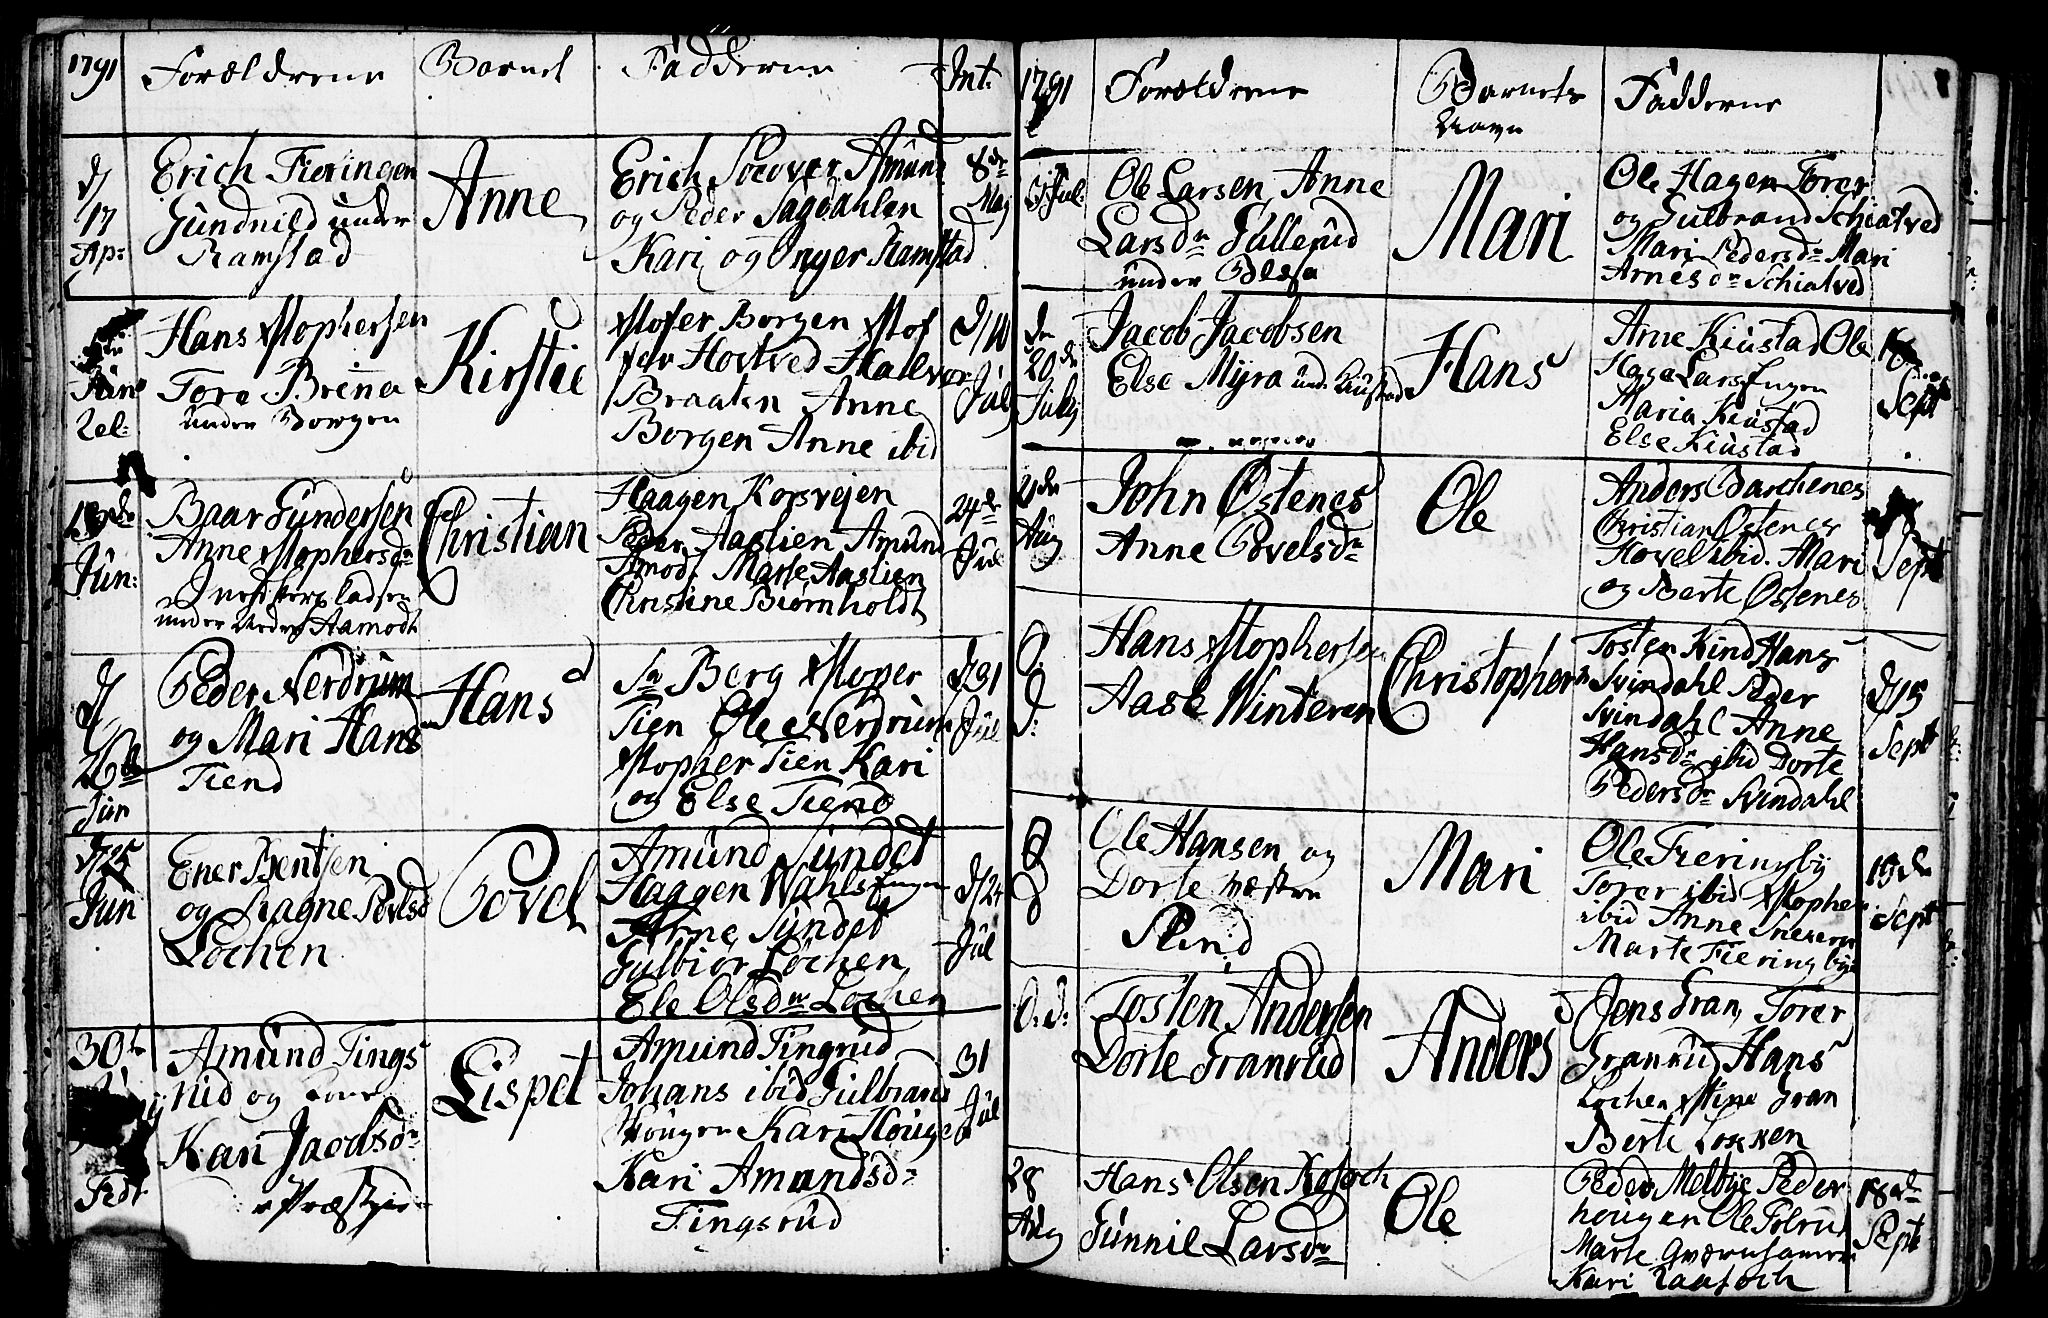 1791 Forældrene Barnet Fadderne Int:
d/17 Ap: Erich Fieringen Gundnild under Ramstad
Anne
Erich Socover Amund
og Peder Sagdahlen
Kari og Inger Ramstad
8de Maj
Jun Hans Xstophersen
Tore Brenna
under Borgen
Kirstie
Xstofer Borgen Xstof
fer Hostved Halvor
Braaten Anne
Borgen Anne ibid
d/10 Jul
19de Jun: Baar Gundersen
Anne Xstophersdn
under Aamodt
Christian
Haagen Korsvejen
Peder Aaslien Amund
Amodt Marte Aaslien
Christine Biørnholdt
24de Jul
d/26de Jun Peder Nerdrum
og Mari Hans
Tiend
Hans
Sn Berg Xstoper
Tien Ole Nerdrum
Xstopher Tien Kari
og Else Tiend
d/31 Jul
d/25 Jun Ener Bentsen
og Ragne Povelsd
Løchen
Povel
Amund Sundet
Haagen Wahls
Arne Sundet
Gulbiør Løchen
Ele Olsdn Løchen
d/24 Jul
30te Amund Tings
rud og
Kari Jacobsdn
Lispet
Amund Tingrud
Johans ibid Gulbrand
Hougen Kari Houge
Kari Amundsdn
Tingsrud
31 Jul
1791 Forældrene Barnets Fadderne
Navn
Jul: Ole Larsen, Anne
Larsdn Gullerud
under
Mari
Ole Hagen Torer
og Gulbrand Schiatved
Mari Pedersdn Mari
Arnesdn Schiatved
den 20de July Jacob Jacobsen
Else Myra und. Kiustad
Hans
Arne Kiustad Ole
Haga Lars Engen
Maria Kiustad
Else Kiustad
Sept
21de Aug John Østenes
Anne Povelsdn
Ole
Anders Barchenes
Christian Østenes
Hovel ibid. Mari
og Berte Østenes
Sept
D: d: Hans Xstophersen
Aase Winteren
Christopher
Tosten Kind Hans
Svindahl Peder
Svindahl Anne
Hansdn ibid Dorte
Pedersdn Svindahl
d/15 Sept
D D Ole Hansen og
Dorte Næsten
Mari
Ole Fieringby
Torer ibid Xstopher
ibid Anne
Marte Fieringbye
19de Sept
D: d: Tosten Andersen
Dorte Granrud
Anders
Jens Gran, Torer
Granrud Hans
Lochen Xstine Gran
Berte Lokken
28 Aug Hans Olsen
Gunnil Larsdn
Ole
Peder Melbye Peder
hougen Ole
Marte
Kari
18de Sept